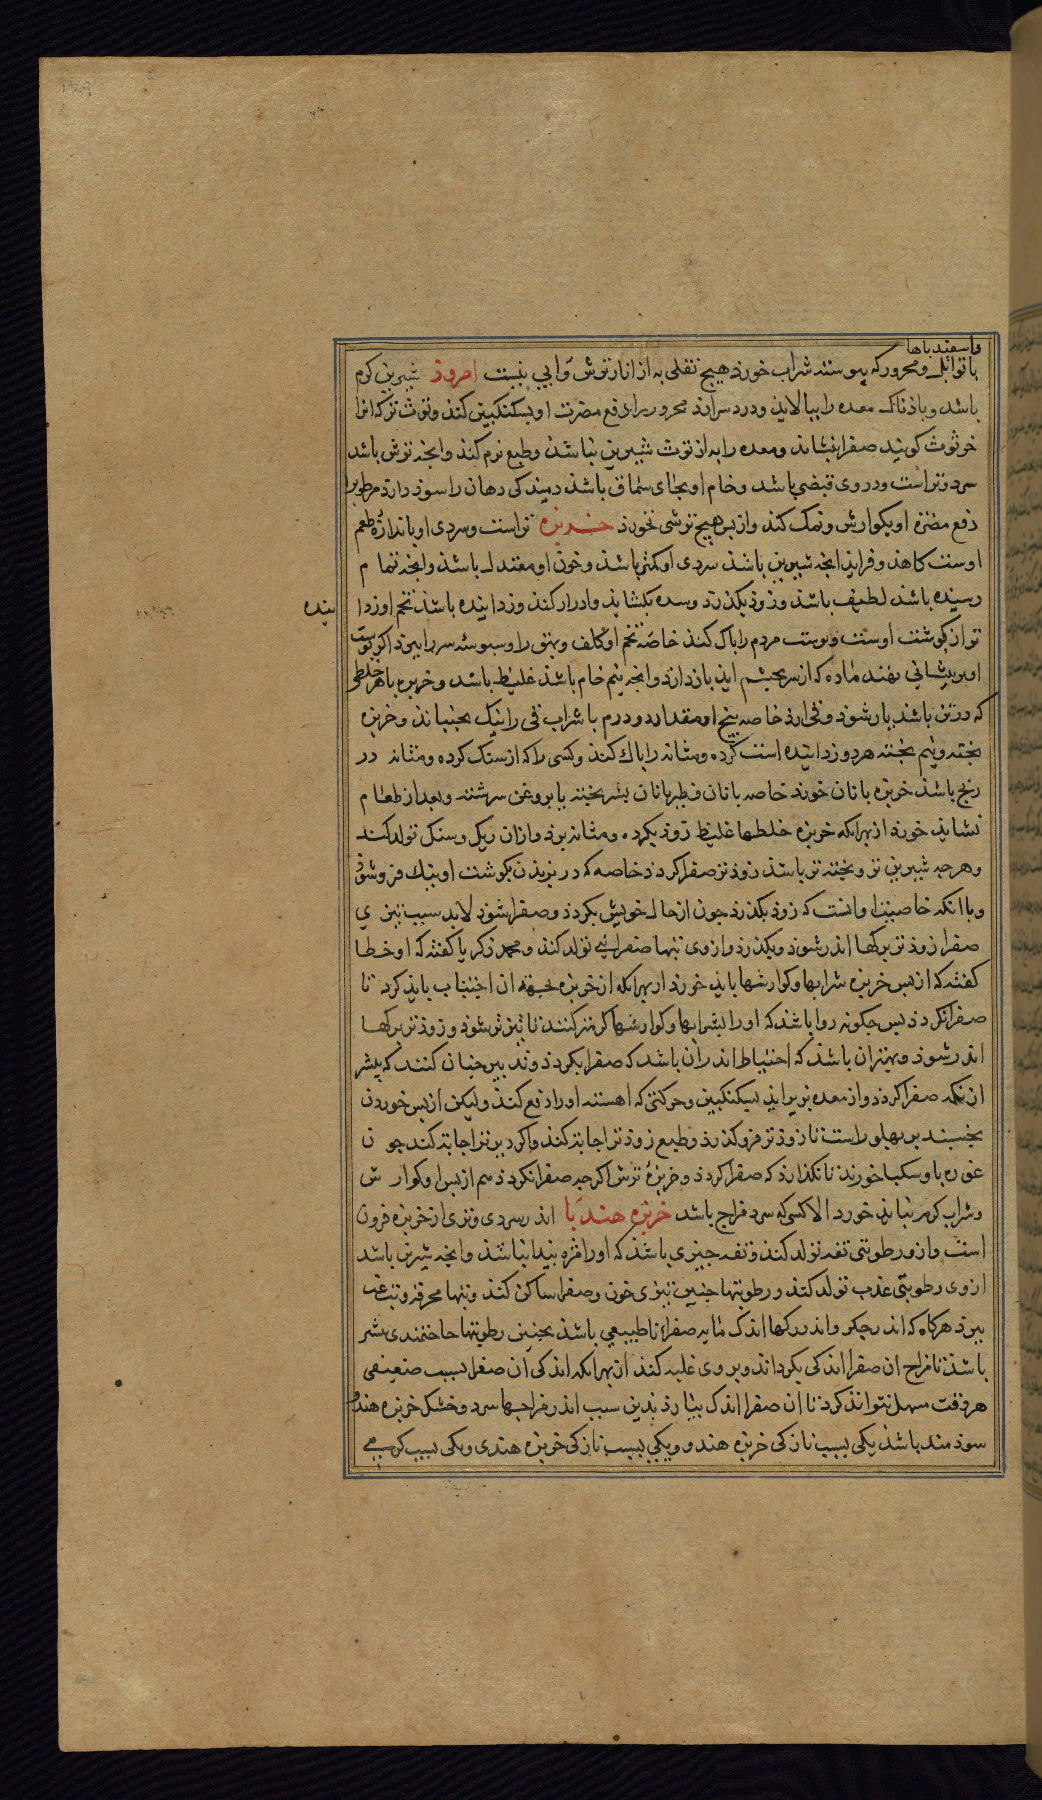 واسفندباها
باتوابل ومحرور که پیوسته شراب خورذ هیچ نقلی به از انار ترش وآبی نیست امروذ شیرین کرم
باشد وباذناک معده را بیالاید ودرد سر ارد محرور برای دفع مضرت او بسکنکبین کند وتوث ترکه انرا
خرتوث کویند صفرا بنشاند ومعده را به از توث شیرین نباشد وطبع نرم کند وانجه ترش باشد
سرد وتراست ودر وی قبضی باشد وخام او بجای سماق باشد دمیدکی دهان را سوذ دارذ مرطوبرا
دفع مضرة او بکوارش ونمک کند وازبس هیچ ترشی نخورد خربزه تراست وسردی او باندازه طعم
اوست کاهد وفزاید انجه شیرین باشد سردی او کمتر باشذ وخون او معتدل باشد وانجه تمام
رسیده باشد لطیف باشد وزوذ بکذرذ وسده بکشاید وادرار کند وزداینده باشد تخم او زدا
ینده
تر از کوشت اوست وپوست مردم را باک کند خاصه تخم او کلف وبهق را وسبوسه سر را ببرد اکر پوست
او بر پیشانی نهند ماده که از سر بچشم اید بازدارد وانجه نیم خام باشد غلیظ باشد وخربزه باهر خلطی
که در تن باشد یار شوذ وقی ارد خاصه بیخ او مقدار دو درم باشراب قی را نیک بجنباند وخربزه
بخته ونیم بخته هر دو زداینده است کرده ومثانه را باک کند وکسی را که از سنک کرده ومثانه در
رنج باشد خربزه بانان خورد خاصه بانان فطیر یانان بشیر بخته یا بروغن سرشته وبعد از طعام
نشاید خورد از بهر انکه خربزه خلطها غلیظ زوذ بکرده ومثانه برد وازان ریک وسنک تولد کند
وهرجه شیرین تر وبخته تر باشذ زوذتر صفرا کردذ خاصه که در بزیذن بکوشت او نیک فرو شوذ
وباانکه خاصیت او انست که زوذ بکذرذ جون از حال خویش بکردذ وصفرا شوذ لابد سبب تیزی
صفرا زوذتر برکها اندر شوذ وبکذرذ وازوی تبها صفرایی تولد کند ومحمد زکریا کفته که او خطا
کفته که ازبس خربزه شرابها وکوارشها باید خورد از بهر انکه از خربزه بجهة ان اجتناب باید کرد تا
صفرا نکردذ بس جکونه روا باشذ که اورا بشرابها وکوارشها کرمتر کنند تا تیزتر شوذ وزوذتر برکها
اندر شوذ وبهتران باشذ که احتیاط اندران باشد که صفرا نکردذ وتدبیر جنان کنند که بیشتر
ازانکه صفرا کردذ واز معده بزیر اید بسکنکبین وحرکتی که اهسته اورا دفع کند ولیکن ازبس خوردن
بخسبند بر پهلو راست تا زوذتر فرو کذرذ وطبع زوذتر اجابة کند واکر دیرتر اجابة کند جون
غوره با وسکبا خورند تا نکذارد که صفرا کردذ وخربزه ترش اکرجه صفرا نکردذ هم ازبس او کوارش
وشراب کرم نباید خورد الا کسی که سرد مزاج باشد خربزه هندبا اندر سردی وتری از خربزه فزون
است وازو رطوبتی تفه تولد کند وتفه جیزی باشذ که اورا مزه بیدا نباشد وانجه شیرین باشد
ازوی رطوبتی عذب تولد کند ورطوبتها جنین تیزی خون وصفرا ساکن کند وتبها محرقه وتب غب
ببرد هرکاه که اندر جکر واندر رکها اندک مایه صفراء ناطبیعی باشذ بجنین رطوبتها حاجتمندی بیشتر
باشد تا مزاج ان صفرا اندکی بکرداند وبروی غلبه کند از بهر انکه اندکی آن صفرا بسبب ضعیفی
هر وقت مسهل نتواند کرد تا ان صفرا اندک بیارذ بدین سبب اندر مزاجها سرد وخشک خربزه هندو
سوذمند باشذ یکی بسبب نازکی خربزه هندو ویکی بسبب نازکی خربزه هندی ویکی بسبب کرمی